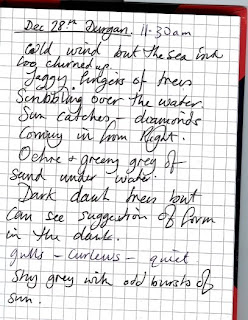 Dec 28th Durgan. 11.30am
Cold wind but the sea isnt
too churned up.
Jaggy fingers of trees
Scribbling over the water.
Sun catches diamonds
Coming in from Right.
Ochre + greeny grey of
sand under water.
Dark dark trees but
can see suggestion of form
in the dark.
gulls - curlews - quiet
Sky grey with odd bursts of
sun.